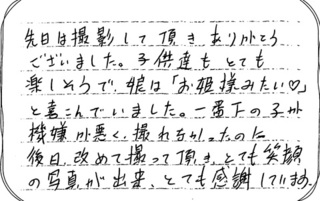 先日は撮影して頂きありがとう
ございました。子供達も とても
楽しそうで、娘は「お姫様みたい♡」
と喜こんでいました。一番下の子が
機嫌が悪く、撮れなかったのに
後日、改めて撮って頂き、とても笑顔
の写真が出来、とても感謝しています。